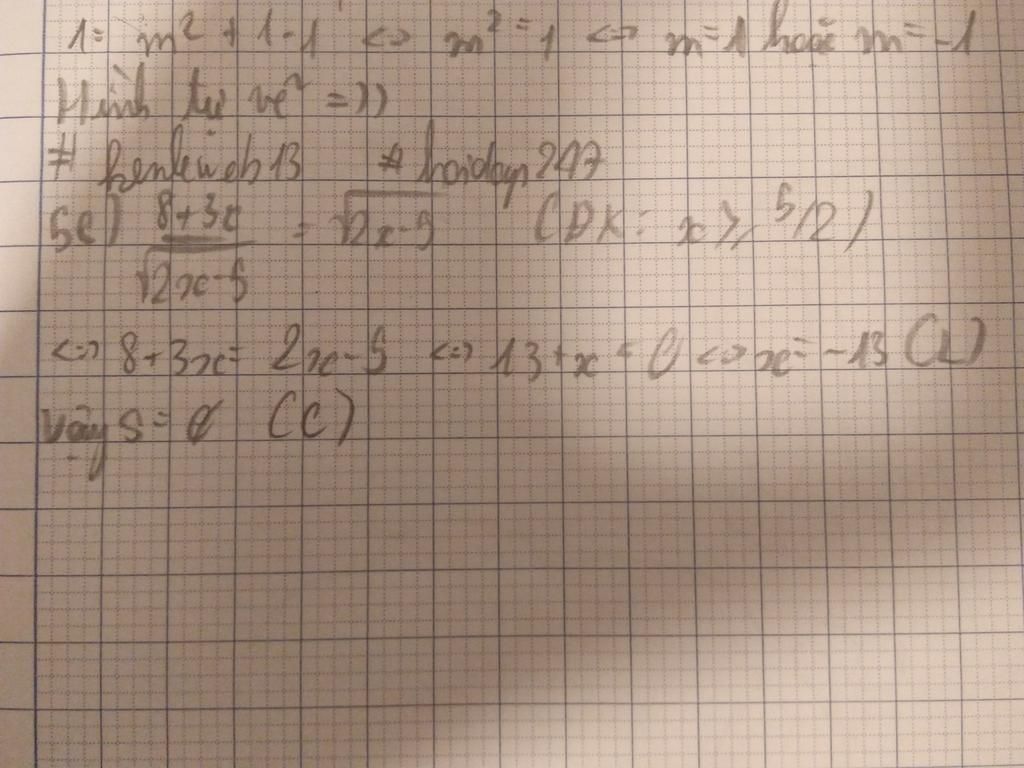 1 = m² + 1 - 1 <=> m² = 1 <=> m = 1 hoặc m = -1
Hình tự vẽ =))
# kenkiweb13 # hoidap247
5c) (8+3x)/√(2x-5) = √(2x-5) (ĐK: x ≥ 5/2)
<=> 8+3x = 2x-5 <=> 13+x = 0 <=> x = -13 (L)
Vậy S = ∅ (C)